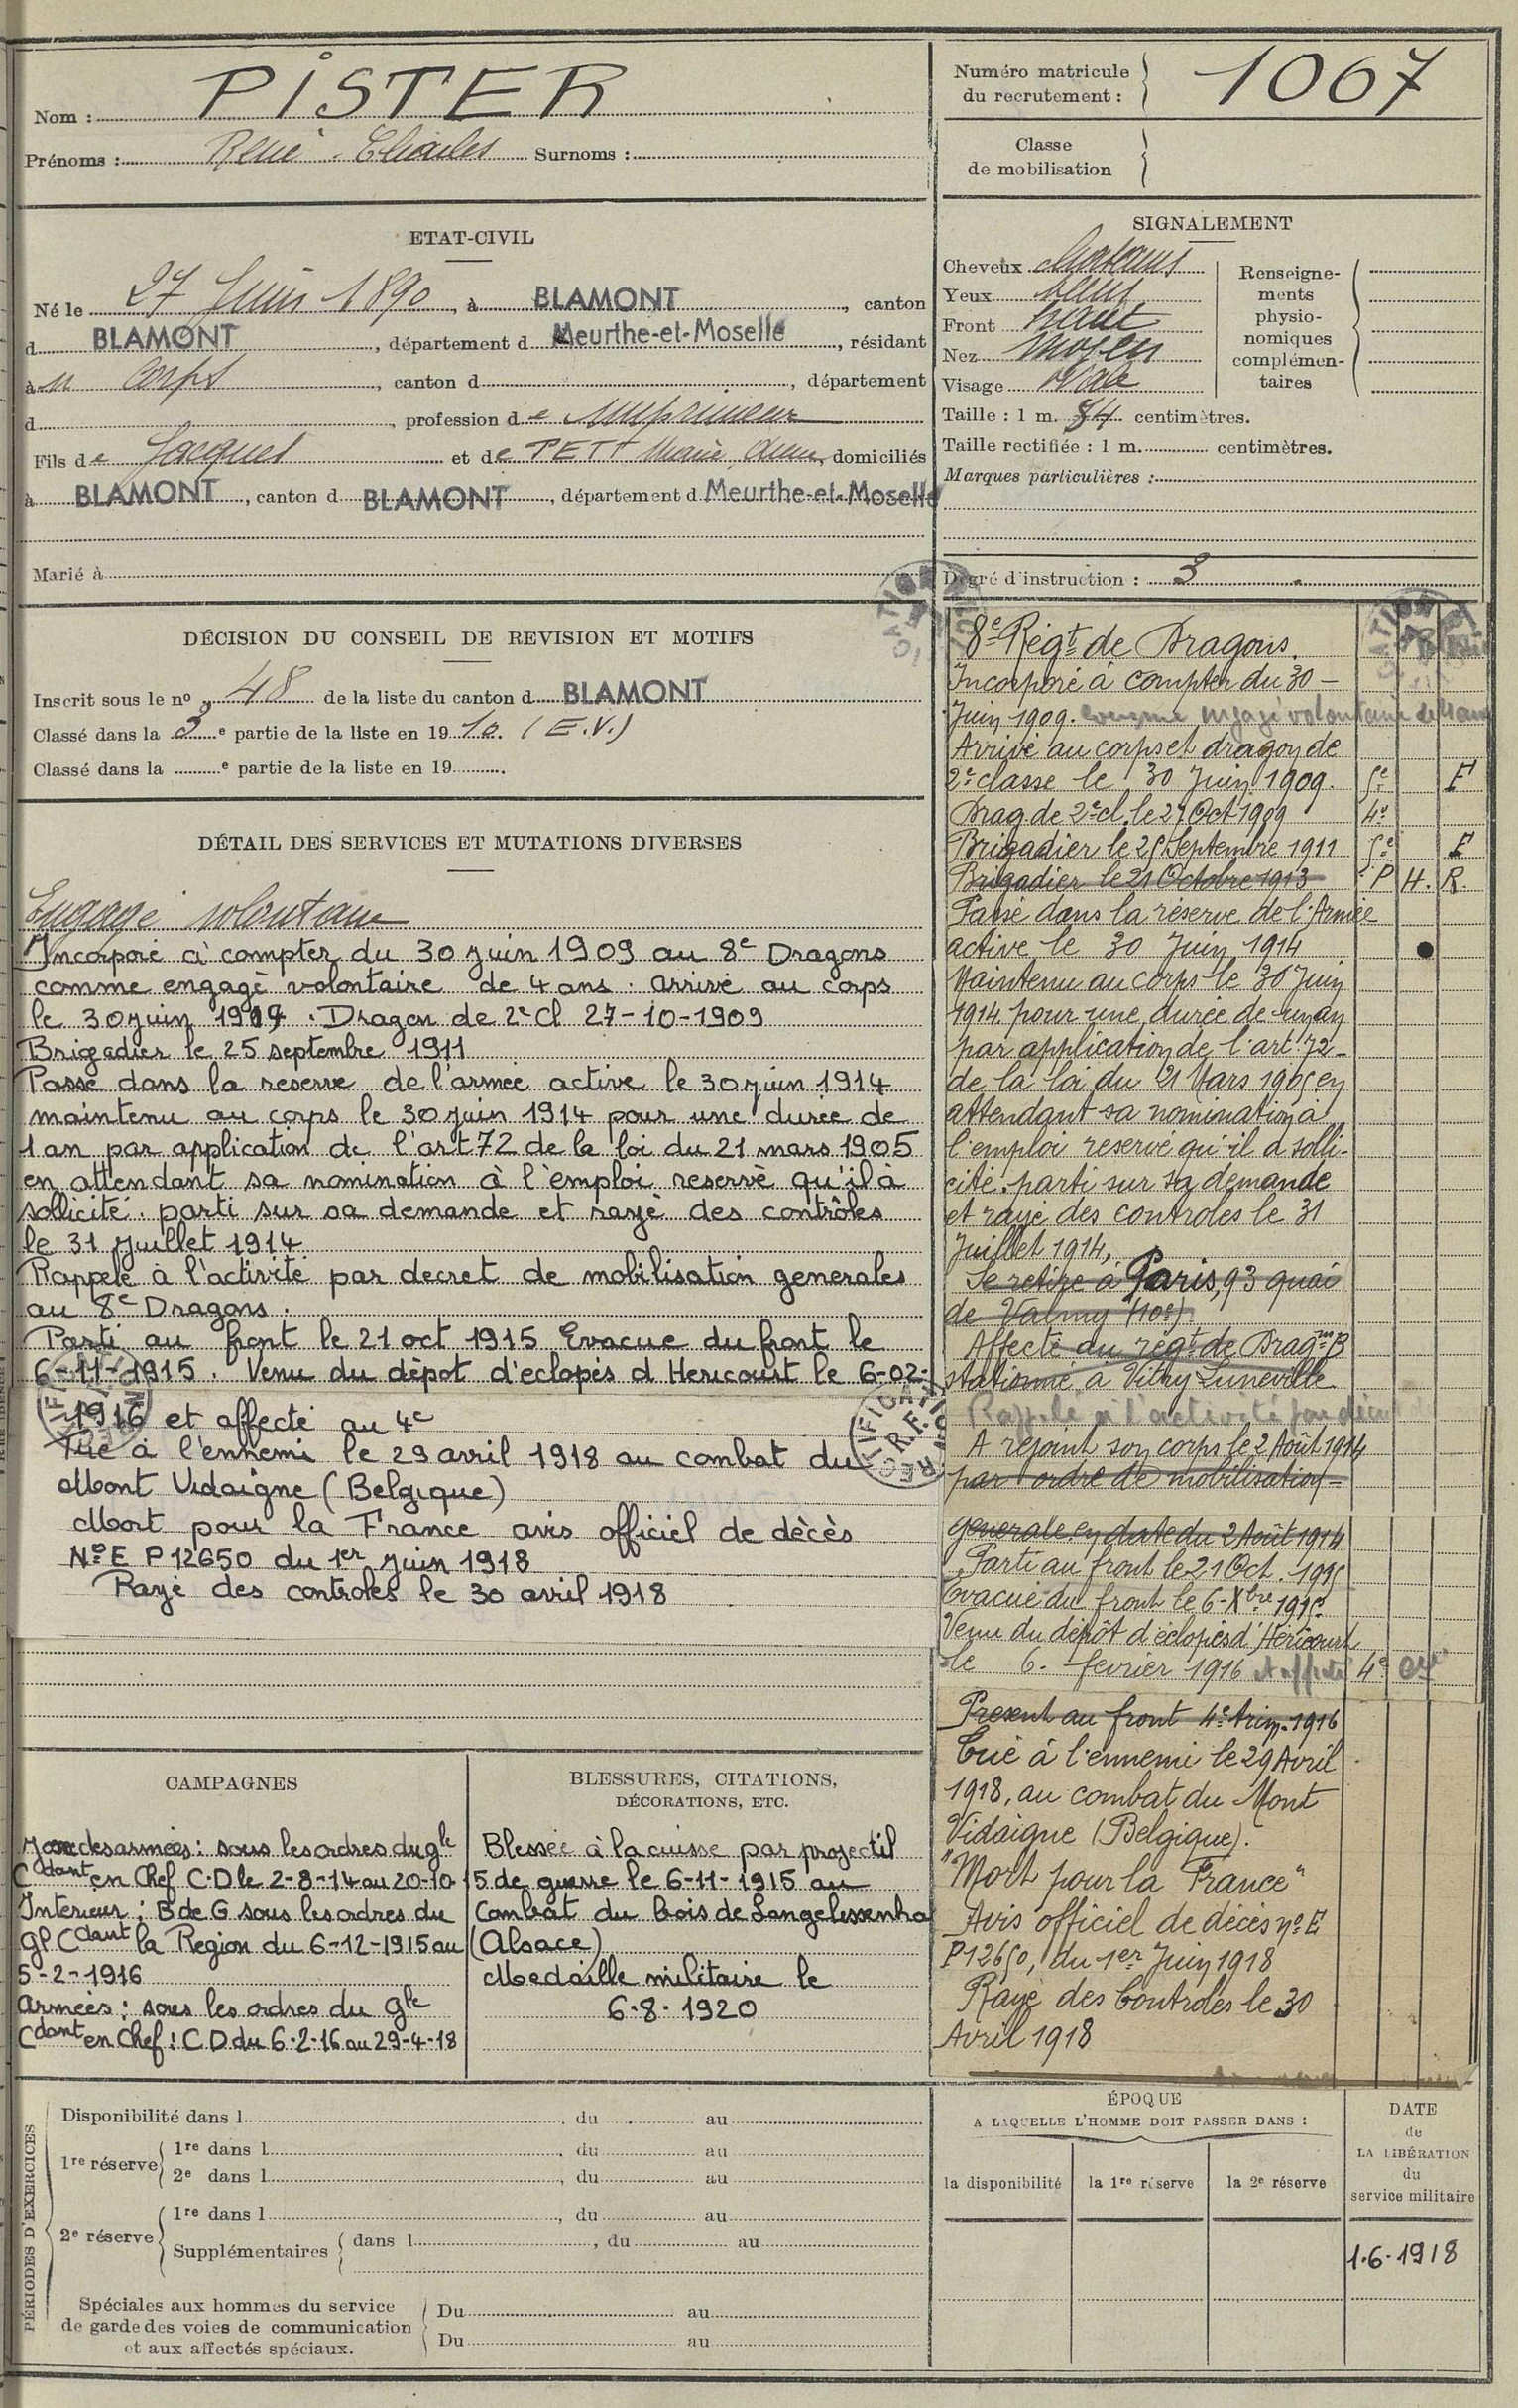 Nom : PISTER
Prénoms : René Charles Surnoms :
Numéro matricule
du recrutement : 1067
Classe
de mobilisation
ETAT-CIVIL
Né le 27 Juin 1890, à BLAMONT, canton
d BLAMONT, département d Meurthe-et-Moselle, résidant
à u Corps, canton d, département
d, profession de Imprimeur
Fils de Jacques et de PETT Marie, domiciliés
à BLAMONT, canton d BLAMONT, département d Meurthe-et-Moselle
Marié à
SIGNALEMENT
Cheveux chatains
Yeux bleus
Front haut
Nez moyen
Visage ovale
Renseigne-
ments
physio-
nomiques
complémen-
taires
Taille : 1 m. 84 centimètres.
Taille rectifiée : 1 m. centimètres.
Marques particulières :
Degré d'instruction : 3
DÉCISION DU CONSEIL DE REVISION ET MOTIFS
Inscrit sous le nº 48 de la liste du canton d BLAMONT
Classé dans la 3e partie de la liste en 1910. (E.V.)
Classé dans la e partie de la liste en 19
DÉTAIL DES SERVICES ET MUTATIONS DIVERSES
Engagé volontaire
Incorporé à compter du 30 juin 1909 au 8e Dragons
comme engagé volontaire de 4 ans. arrivé au corps
le 30 juin 1909. Dragon de 2e Cl 27-10-1909
Brigadier le 25 septembre 1911
Passé dans la reserve de l'armée active le 30 juin 1914
maintenu au corps le 30 juin 1914 pour une durée de
1 an par application de l'art 72 de la loi du 21 mars 1905
en attendant sa nomination à l'èmploi reservè qu'il à
sollicité. parti sur sa demande et rayè des contrôles
le 31 juillet 1914
Rappelé à l'activité par decret de mobilisation generales
au 8e Dragons.
Parti au front le 21 oct 1915 Evacue du front le
6-11-1915. Venu du dèpot d'éclopés d Hericourt le 6-02-
1916 et affecté au 4e
Tué à l'ennemi le 29 avril 1918 au combat du
Mont Vidaigne (Belgique)
Mort pour la France avis officiel de décès
No E P 12650 du 1er juin 1918
Rayé des controles le 30 avril 1918
8e Régt de Dragons.
Incorporé à compter du 30 -
Juin 1909. comme engagé volontaire de 4 ans
Arrivé au corps et dragon de
2e classe le 30 Juin 1909. 5e E
Drag. de 2e cl. le 27 Oct 1909 4e
Brigadier le 25 Septembre 1911 5e E
Brigadier le 21 Octobre 1913 P H. R.
Passé dans la réserve de l'Armée
active le 30 Juin 1914
Maintenu au corps le 30 Juin
1914 pour une durée de un an
par application de l'art 72 -
de la loi du 21 Mars 1905 en
attendant sa nomination à
l'emploi reservé qu'il a solli-
cité. parti sur sa demande
et rayé des contrôles le 31
Juillet 1914,
Se retire à Paris, 93 quai
de Valmy (10e)
Affecté du régt de Dragons B
stationné à Vitry Lunéville
Rappelé à l'activité par décret
A rejoint son corps le 2 Août 1914
par ordre de mobilisation
générale en date du 2 Août 1914
Parti au front le 21 Oct. 1915
Evacué du front le 6-Xbre 1915
Venu du dépôt d'éclopés d'Héricourt
le 6. février 1916 et affecté 4e
Present au front 4e trim. 1916
Tué à l'ennemi le 29 Avril
1918, au combat du Mont
Vidaigne (Belgique).
"Mort pour la France"
Avis officiel de décès no E
P12650, du 1er Juin 1918
Rayé des Controles le 30
Avril 1918
CAMPAGNES
des armées : sous les ordres du gle
Cdant en Chef C.D le 2-8-14 au 20-10-15
Interieur : B de G sous les ordres du
Gl Cdant la Region du 6-12-1915 au
5-2-1916
armées : sous les ordres du Gle
Cdant en Chef : C D du 6-2-16 au 29-4-18
BLESSURES, CITATIONS,
DÉCORATIONS, ETC.
Blessée à la cuisse par projectil
de guerre le 6-11-1915 au
Combat du bois de Langelessenha
(Alsace)
Medaille militaire le
6.8.1920
PÉRIODES D'EXERCICES
Disponibilité dans l du au
1re réserve
1re dans l, du au
2e dans l, du au
2e réserve
1re dans l, du au
Supplémentaires dans l, du au
Spéciales aux hommes du service
de garde des voies de communication
et aux affectés spéciaux.
Du au
Du au
ÉPOQUE
A LAQUELLE L'HOMME DOIT PASSER DANS :
la disponibilité
la 1re réserve
la 2e réserve
DATE
de
LA LIBÉRATION
du
service militaire
1.6-1918